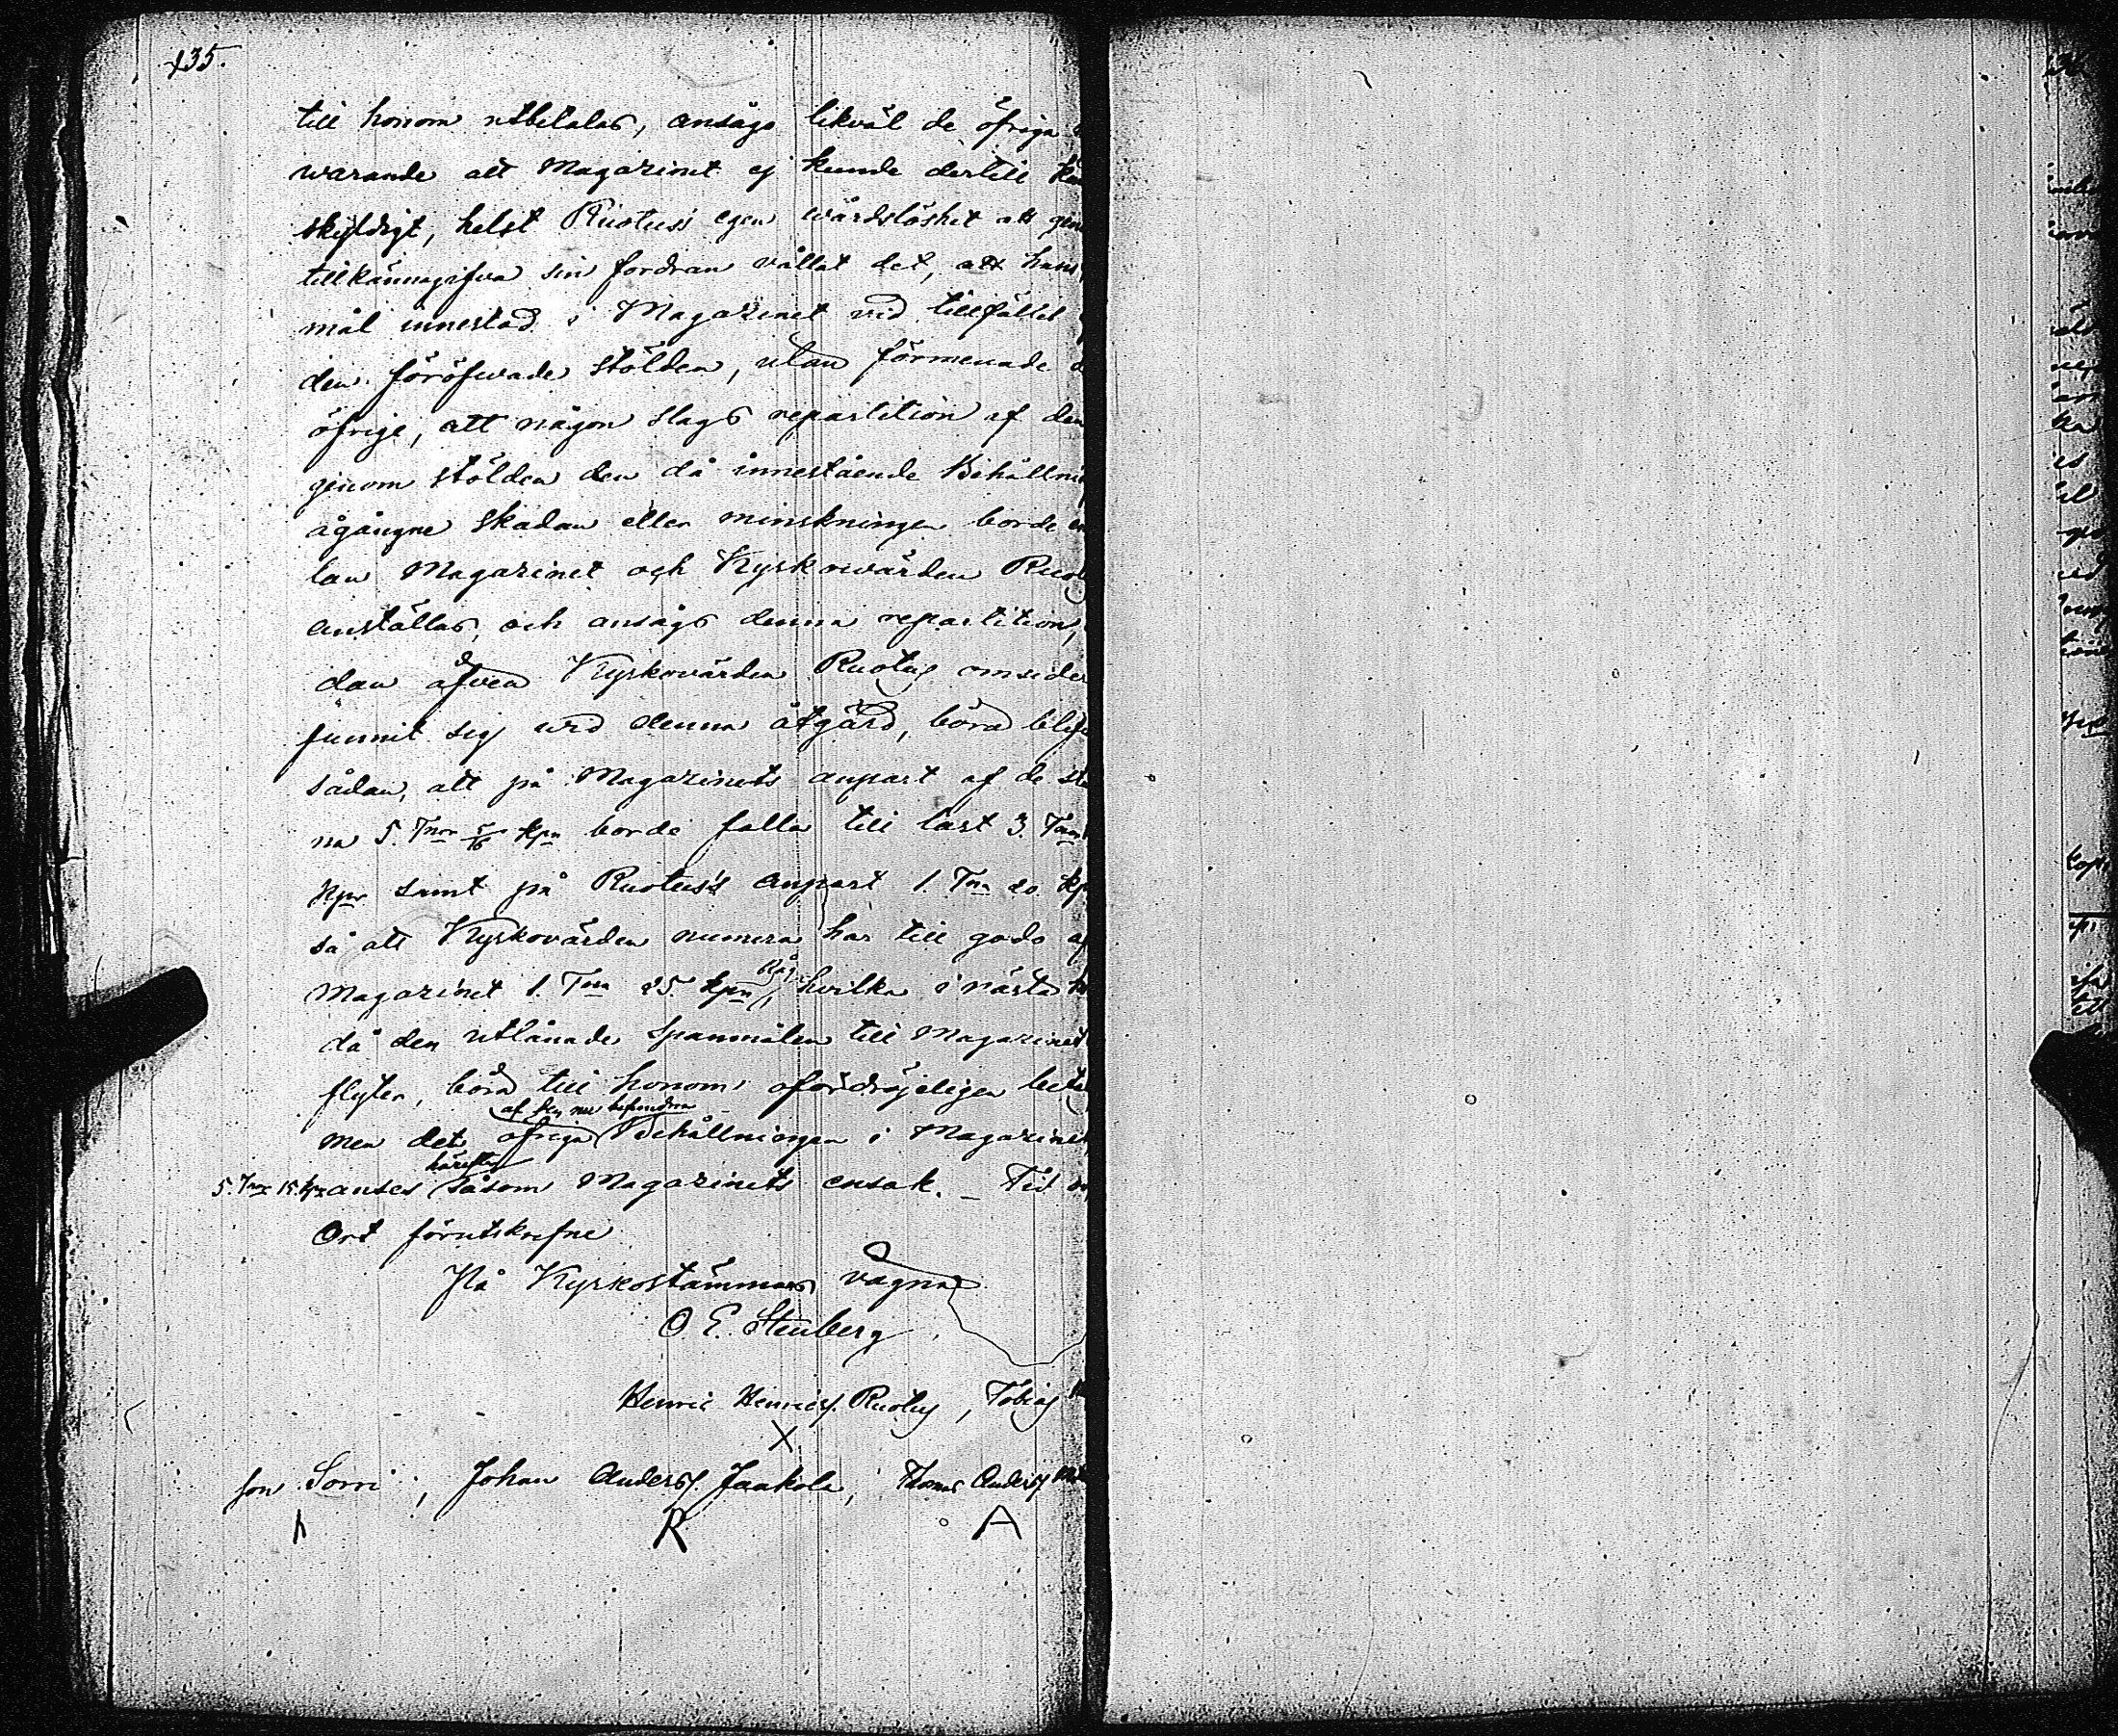 135.
till honom utbetalas, ansågo likväl de öfriga
warande att Magazinet ej kunde dertill
skyldigt, helst Ruotus's egen wårdslöshet att
tillkännagifwa sin fordran vållat det, att hans
mål innestod i Magazinet vid tillfället
den föröfwade stölden, utan förmenade
öfrige, att någon slags repartition af den
genom stölden den då innestående Behålln
ågångne skadan eller minskningen borde
lan Magazinet och Kyrkowärden Ruot
anställas, och ansågs denna repartition,
dan äfven Kyrkovärden Ruotus omsider
funnit sig wid denna åtgärd, böra blifw
sådan, att på Magazinets anpart af de
na 5. Tnr 5/16 kpr borde falla till last 3 Tnr
kpr samt på Ruotus's anpart 1. Tna 20 kp
så att Kyrkovärden numera har till godo af
Magazinet 1. Tna 25. kpr Råg, hvilka i nästa
då den utlånade Spanmålen till Magazinet
flyter, böra till honom ofördröjeligen
af den nu befundna
men det öfriga Behållningen i Magazinet
härefter
5. Tnr 15. kpr anses såsom Magazinets ensak. – Tid
Ort förutskrefne
På Kyrkostämmans vägnar
O E. Stenberg
Henric Henrics. Ruotus, Tobias
X
son Sorri, Johan Anders. Jaakola, Thomas Anders
R A